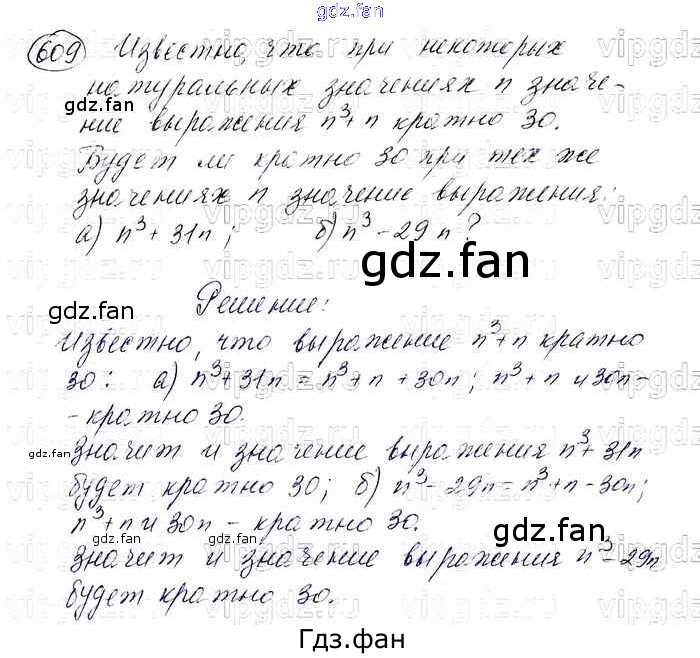 gdz.fan
609 Известно, что при некоторых
натуральных значениях n значе-
gdz.fan
ние выражения n³+n кратно 30.
Будет ли кратно 30 при тех же
значениях n значение выражения:
а) n³ + 31n; б) n³ - 29n?
gdz.fan
gdz.fan
Решение:
Известно, что выражение n³+n кратно
30: а) n³+31n = n³+n+30n; n³+n и 30n-
- кратно 30.
gdz.fan
Значит и значение выражения n³+31n
будет кратно 30; б) n³-29n=n³+n-30n;
n³+n и 30n - кратно 30.
gdz.fan gdz.fan gdz.fan
Значит и значение выражения n³-29n
будет кратно 30.
Гдз.фан